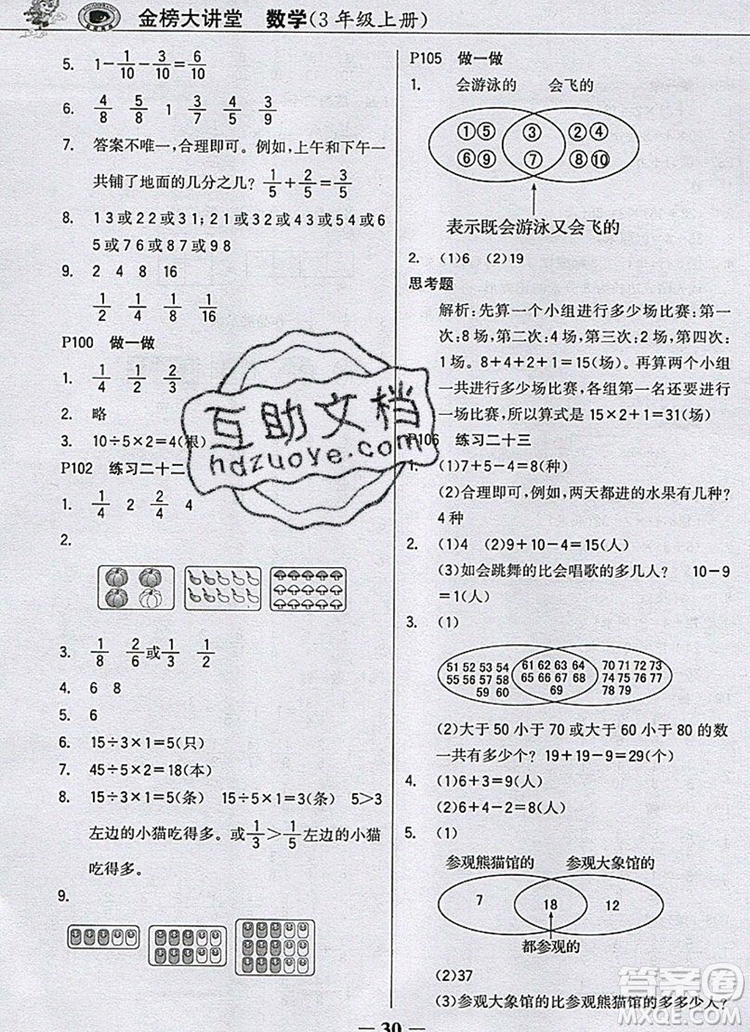 金榜大讲堂 数学(3年级上册)
5. 1－1/10－3/10＝5/10
6. 4/8 5/8 1 3/7 4/9 2/6
7. 答案不唯一,合理即可。例如,上午和下午一
共铺了地面的几分之几? 1/5＋2/5＝3/5
8. 13或22或31;21或32或43或54或65
或76或87或98 97
9. 2 4 8 16
1/2 1/4 1/8 1/16
P100 做一做
1. 1/4 2/4
2. 略
3. 10÷5×2＝4(块)
P102 练习二十二
1. 1/4 2 2/4 4
2.
3. 1/8 2/6或1/3 1/2
4. 6 8
5. 6
6. 15÷3×1＝5(只)
7. 45÷5×2＝18(本)
8. 15÷3×1＝5(条) 15÷5×1＝3(条) 5>3
左边的小猫吃得多。或1/3>1/5左边的小猫
吃得多。
9.
P105 做一做
1. 会游泳的 会飞的
①⑤ ③ ②④
⑥⑨ ⑦ ⑧⑩
表示既会游泳又会飞的
2. (1)6 (2)19
思考题
解析:先算一个小组进行多少场比赛:第一
次:8场,第二次:4场,第三次:2场,第四次:
1场。8＋4＋2＋1＝15(场)。再算两个小组
一共进行多少场比赛,各组第一名还要进行
一场比赛,所以算式是15×2＋1＝31(场)。
P106 练习二十三
1. (1)7＋5－4＝8(种)
(2)合理即可,例如,两天都进的水果有几种?
4种
2. (1)4 (2)9＋10－4＝15(人)
(3)如会跳舞的比会唱歌的多几人? 10－9
＝1(人)
3. (1)
51 52 53 54 61 62 63 64 70 71 72 73
55 56 57 58 65 66 67 68 74 75 76 77
59 60 69 78 79
(2)大于50小于70或大于60小于80的数
一共有多少个? 19＋19－9＝29(个)
4. (1)6＋3＝9(人)
(2)6＋4－2＝8(人)
5. (1)
参观熊猫馆的 参观大象馆的
7 18 12
都参观的
(2)37
(3)参观大象馆的比参观熊猫馆的多多少人?
— 30 —
互助文档
hdzuoye.com
答案圈
MXQE.COM